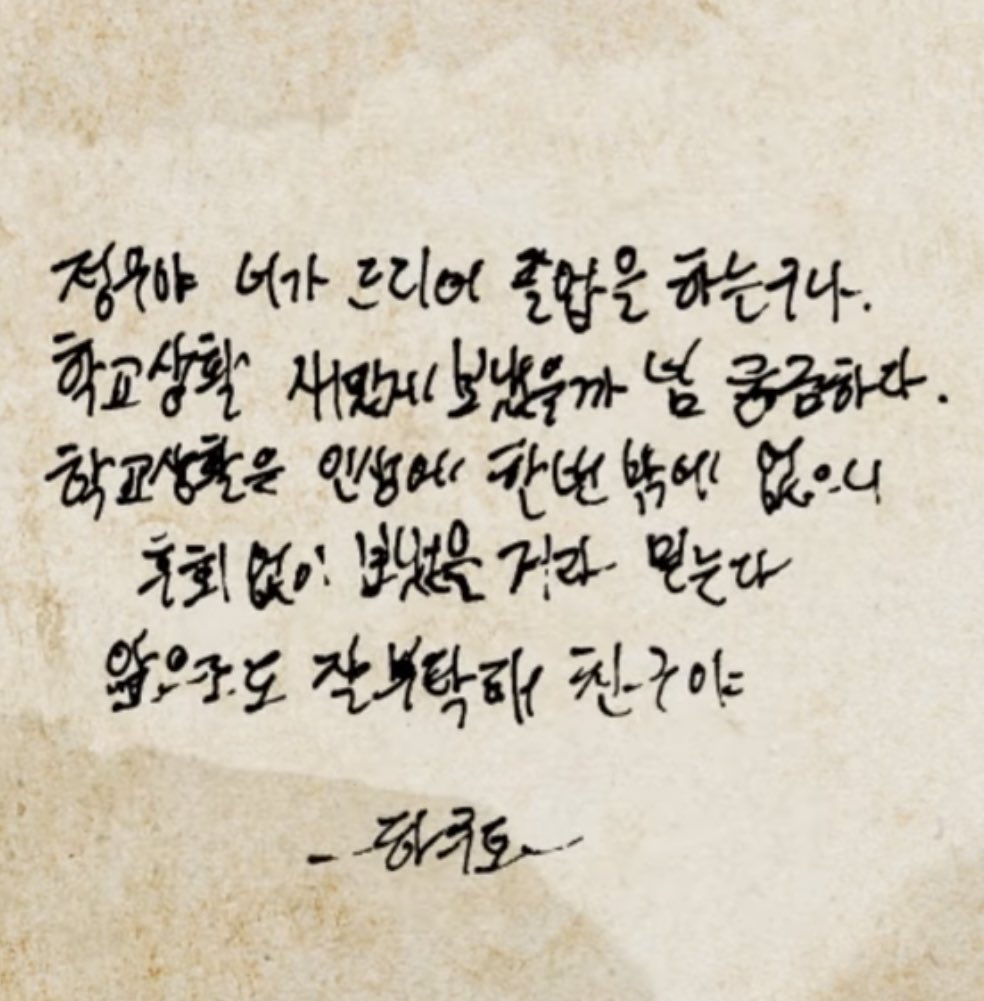 정우야 너가 드리어 졸업을 하는구나.
학교생활 재밌게 보냈을까 넘 궁금하다.
학교생활은 인생에 한번 밖에 없으니
후회 없이 보냈을 거라 믿는다
앞으로도 잘 부탁해 친구야